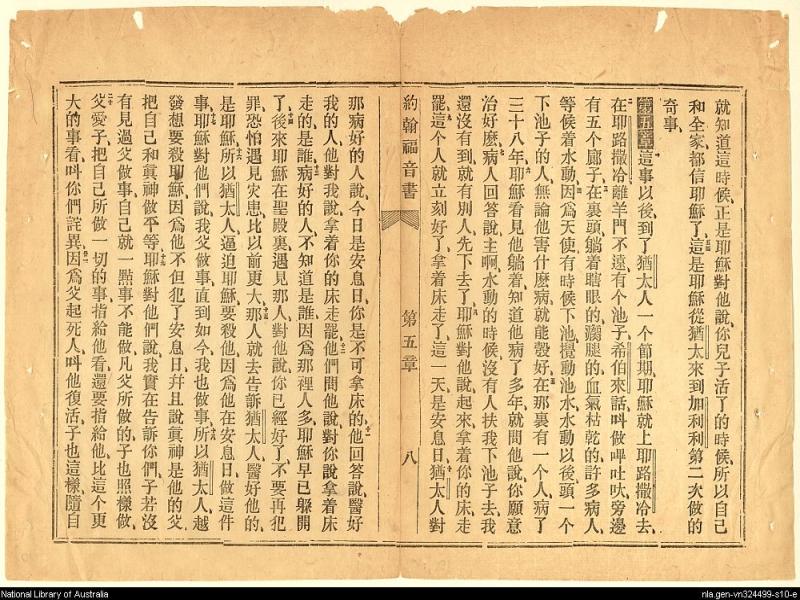 就知道這時候、正是耶穌對他說、你兒子活了的時候、所以自己
和全家都信耶穌了、這是耶穌從猶太來到加利利第二次做的
奇事、
第五章 這事以後到了猶太人一個節期、耶穌就上耶路撒冷去、
在耶路撒冷離羊門不遠、有個池子、希伯來話、叫做嗶吐吠、旁邊
有五個廊子、在裏頭躺着瞎眼的瘸腿的血氣枯乾的許多病人、
等候着水動、因爲天使有時候下池攪動池水、水動以後、頭一個
下池子的人、無論他害什麽病、就能彀好、在那裏有一個人、病了
三十八年、耶穌看見他躺着、知道他病了多年、就問他說、你願意
治好麽、病人回答說、主啊、水動的時候、沒有人扶我下池子去、我
還沒有到、就有別人先下去了、耶穌對他說、起來拿着你的床走
罷、這個人就立刻好了、拿着床走了、這一天是安息日、猶太人對
約翰福音書 第五章 八
那病好的人說、今日是安息日、你是不可拿床的、他回答說、醫好
我的人、他對我說、拿着你的床走罷、他們問他說、對你說拿着床
走的是誰、病好的人、不知道是誰、因爲那裡人多、耶穌早已躲開
了、後來耶穌在聖殿裏遇見那人、對他說、你已經好了、不要再犯
罪、恐怕遇見灾患、比以前更大、那人就去告訴猶太人、醫好他的
是耶穌、所以猶太人逼迫耶穌要殺他、因爲他在安息日做這件
事、耶穌對他們說、我父做事直到如今、我也做事、所以猶太人越
發想要殺耶穌、因爲他不但犯了安息日、幷且說眞神是他的父、
把自己和眞神做平等、耶穌對他們說、我實在告訴你們、子若沒
有見過父做事、自己就一點事不能做、凡父所做的、子也照樣做、
父愛子、把自己所做一切的事指給他看、還要指給他比這個更
大的事看、叫你們詫異、因爲父起死人、叫他復活、子也這樣隨自
National Library of Australia
nla.gen-vn324499-s10-e